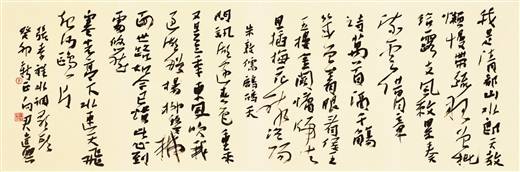 我是清都山水郎天教
懒慢带疏狂曾批
给露支风敕累奏
流云借月章
诗万首酒千觞
几曾着眼看侯王
玉楼金阙慵归去
且插梅花醉洛阳
朱敦儒鹧鸪天
问讯湖边春色重来
又是三年东风吹我
过湖船杨柳丝丝拂
面世路如今已惯此心到
处悠然
寒光亭下水连天飞
起沙鸥一片
张孝祥水调歌头
癸卯新正